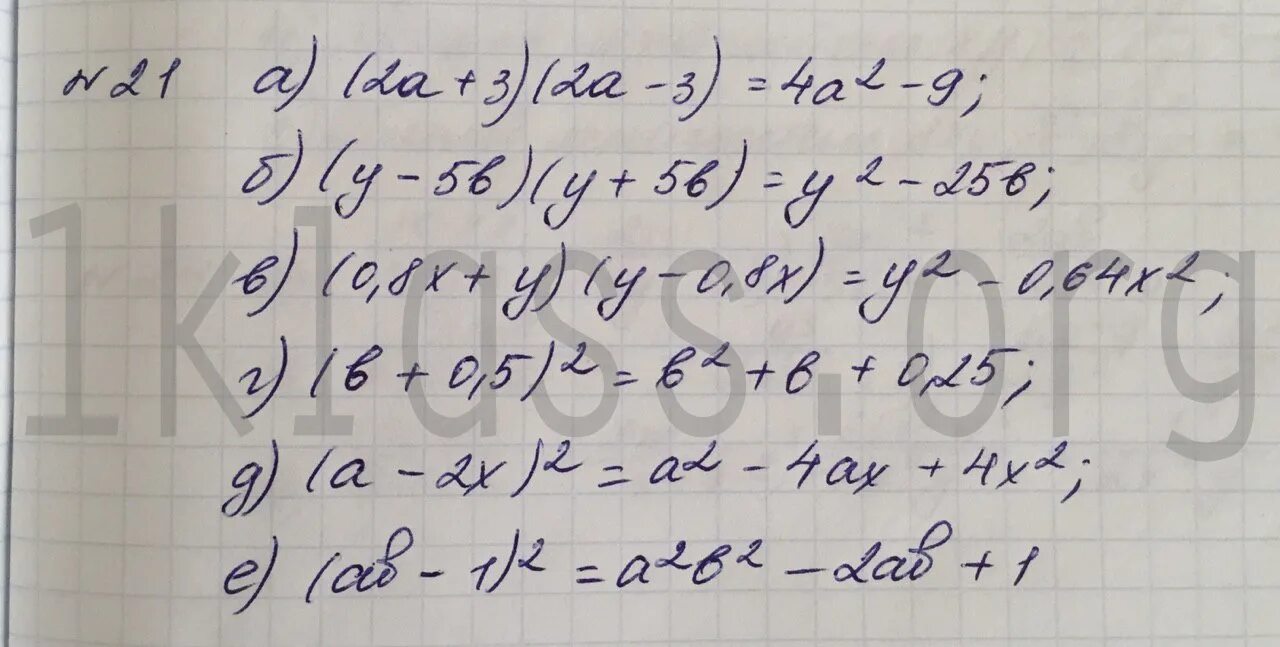 №21 а) (2a + 3)(2a - 3) = 4a² - 9;
б) (y - 5в)(y + 5в) = y² - 25в;
в) (0,8x + y)(y - 0,8x) = y² - 0,64x²;
г) (в + 0,5)² = в² + в + 0,25;
д) (a - 2x)² = a² - 4ax + 4x²;
е) (aв - 1)² = a²в² - 2aв + 1
1klass.org